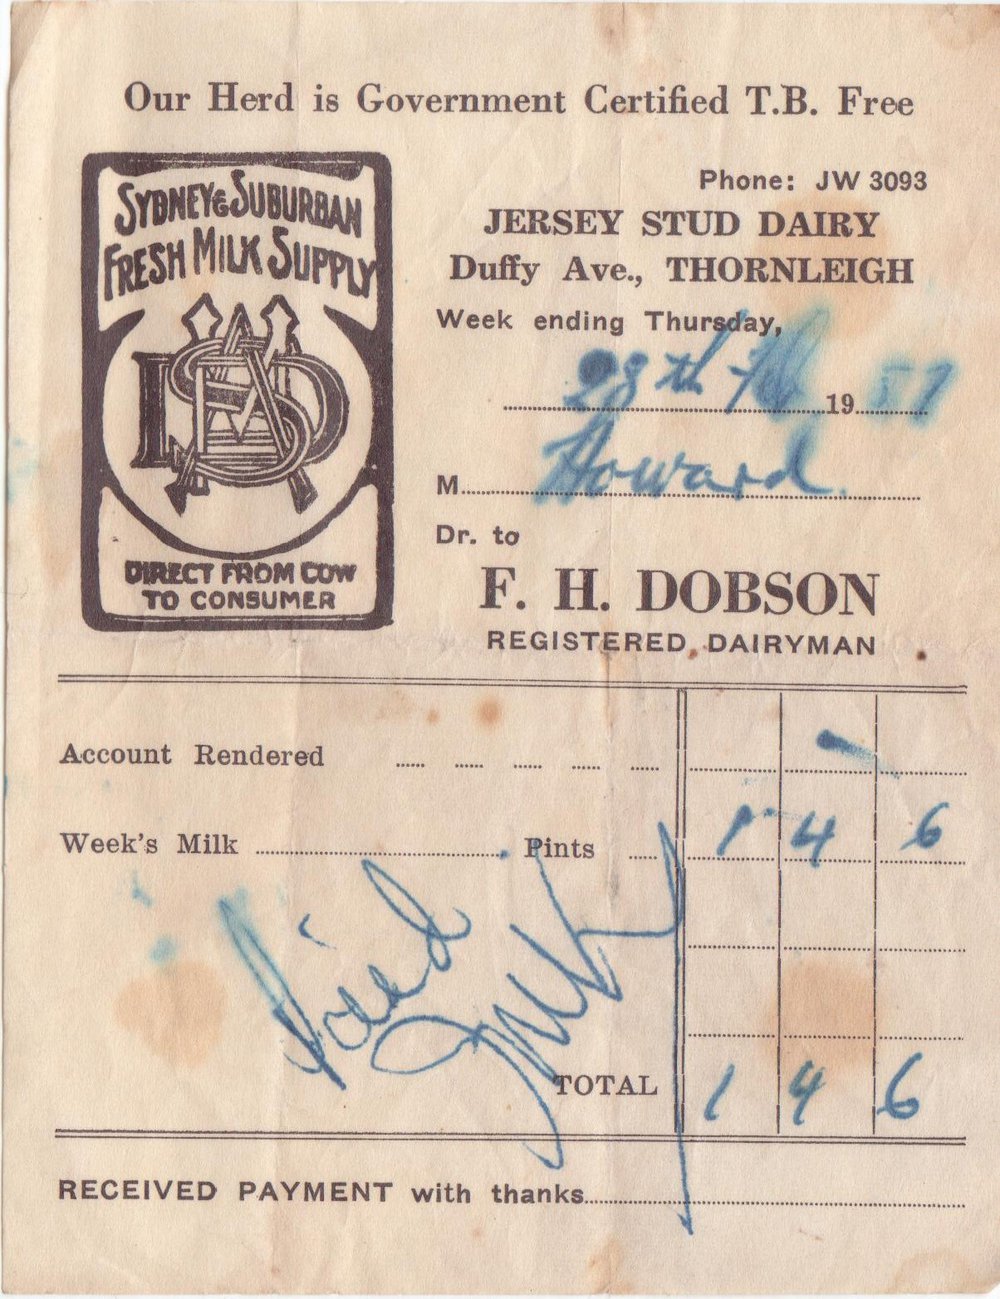 Our Herd is Government Certified T.B. Free
SYDNEY & SUBURBAN
FRESH MILK SUPPLY
DIRECT FROM COW
TO CONSUMER
Phone: JW 3093
JERSEY STUD DAIRY
Duffy Ave., THORNLEIGH
Week ending Thursday,
28th Feb 1957
M Howard.
Dr. to
F. H. DOBSON
REGISTERED DAIRYMAN
Account Rendered -
Week's Milk Pints 1 4 6
Paid
TOTAL 1 4 6
RECEIVED PAYMENT with thanks